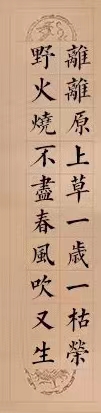 離離原上草一歲一枯榮
野火燒不盡春風吹又生